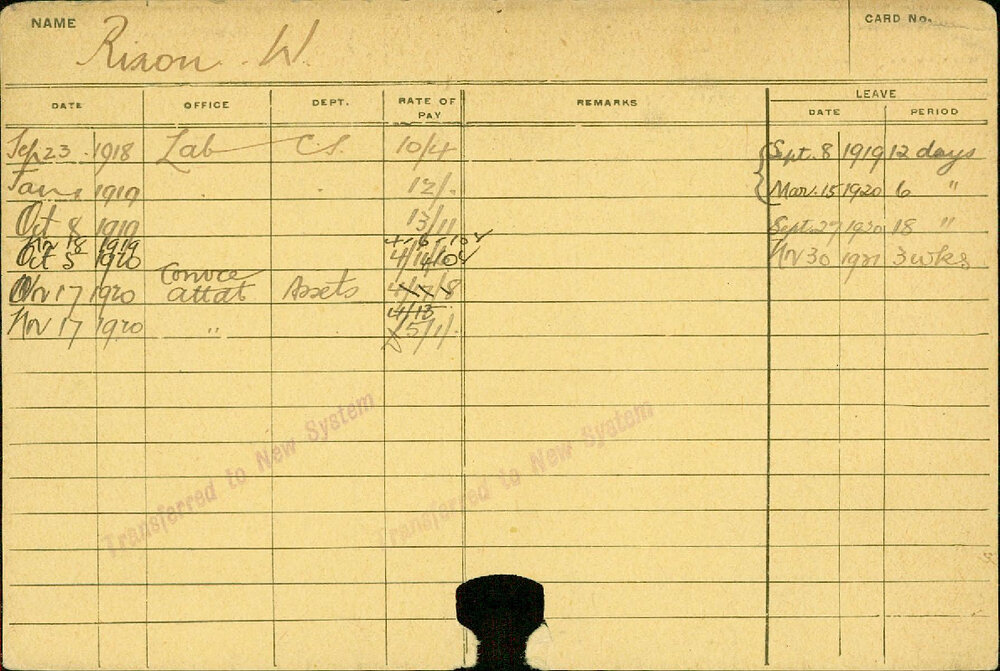 NAME
CARD No.
Rixon W.
DATE OFFICE DEPT. RATE OF PAY REMARKS LEAVE
DATE PERIOD
Sep 23 1918 Lab C.S. 10/4 Sept. 8 1919 12 days
Jan 1 1919 . . 12/. Mar. 15 1920 6 "
Oct 8 1919 13/11 Sept 27 1920 18 "
Nov 18 1919
Oct 5 1920 Nov 30 1921 3 wks
Nov 17 1920 attdt Assets
4/15
Nov 17 1920 " 5/1/.
Transferred to New System
Transferred to New System